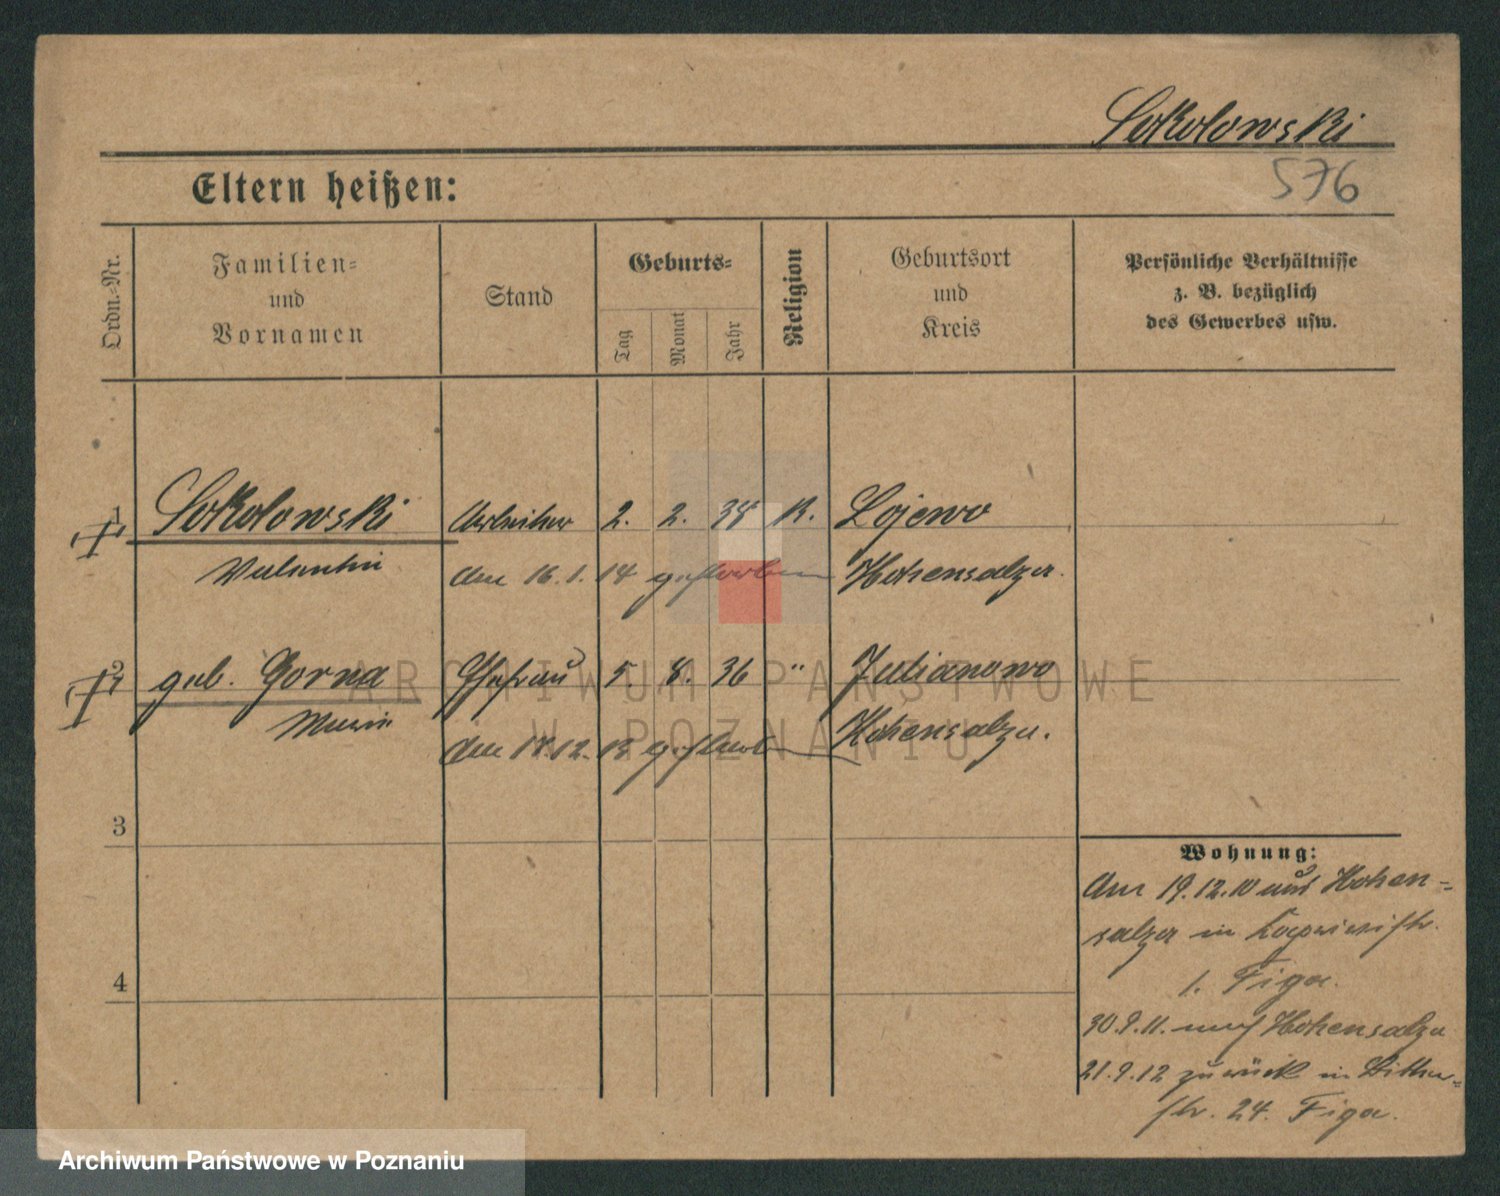 Sokolowski
576
Eltern heißen:
Ordn.-Nr.
Familien-
und
Vornamen
Stand
Geburts-
Tag
Monat
Jahr
Religion
Geburtsort
und
Kreis
Persönliche Verhältnisse
z. B. bezüglich
des Gewerbes usw.
1 Sokolowski Arbeiter 2. 2. 38 K. Lojewo
Valentin am 16.1.14 gestorben Hohensalza.
2 geb. Gorna Ehefrau 5. 8. 36 " Julianowo
Maria am 18.12. gestorben Hohensalza.
3
4
Wohnung:
Am 19.12.10 aus Hohen-
salza in
1. Figa.
30.9.11. nach Hohensalza
21.9.12 zurück in
str. 24. Figa.
ARCHIWUM PAŃSTWOWE
W POZNANIU
Archiwum Państwowe w Poznaniu